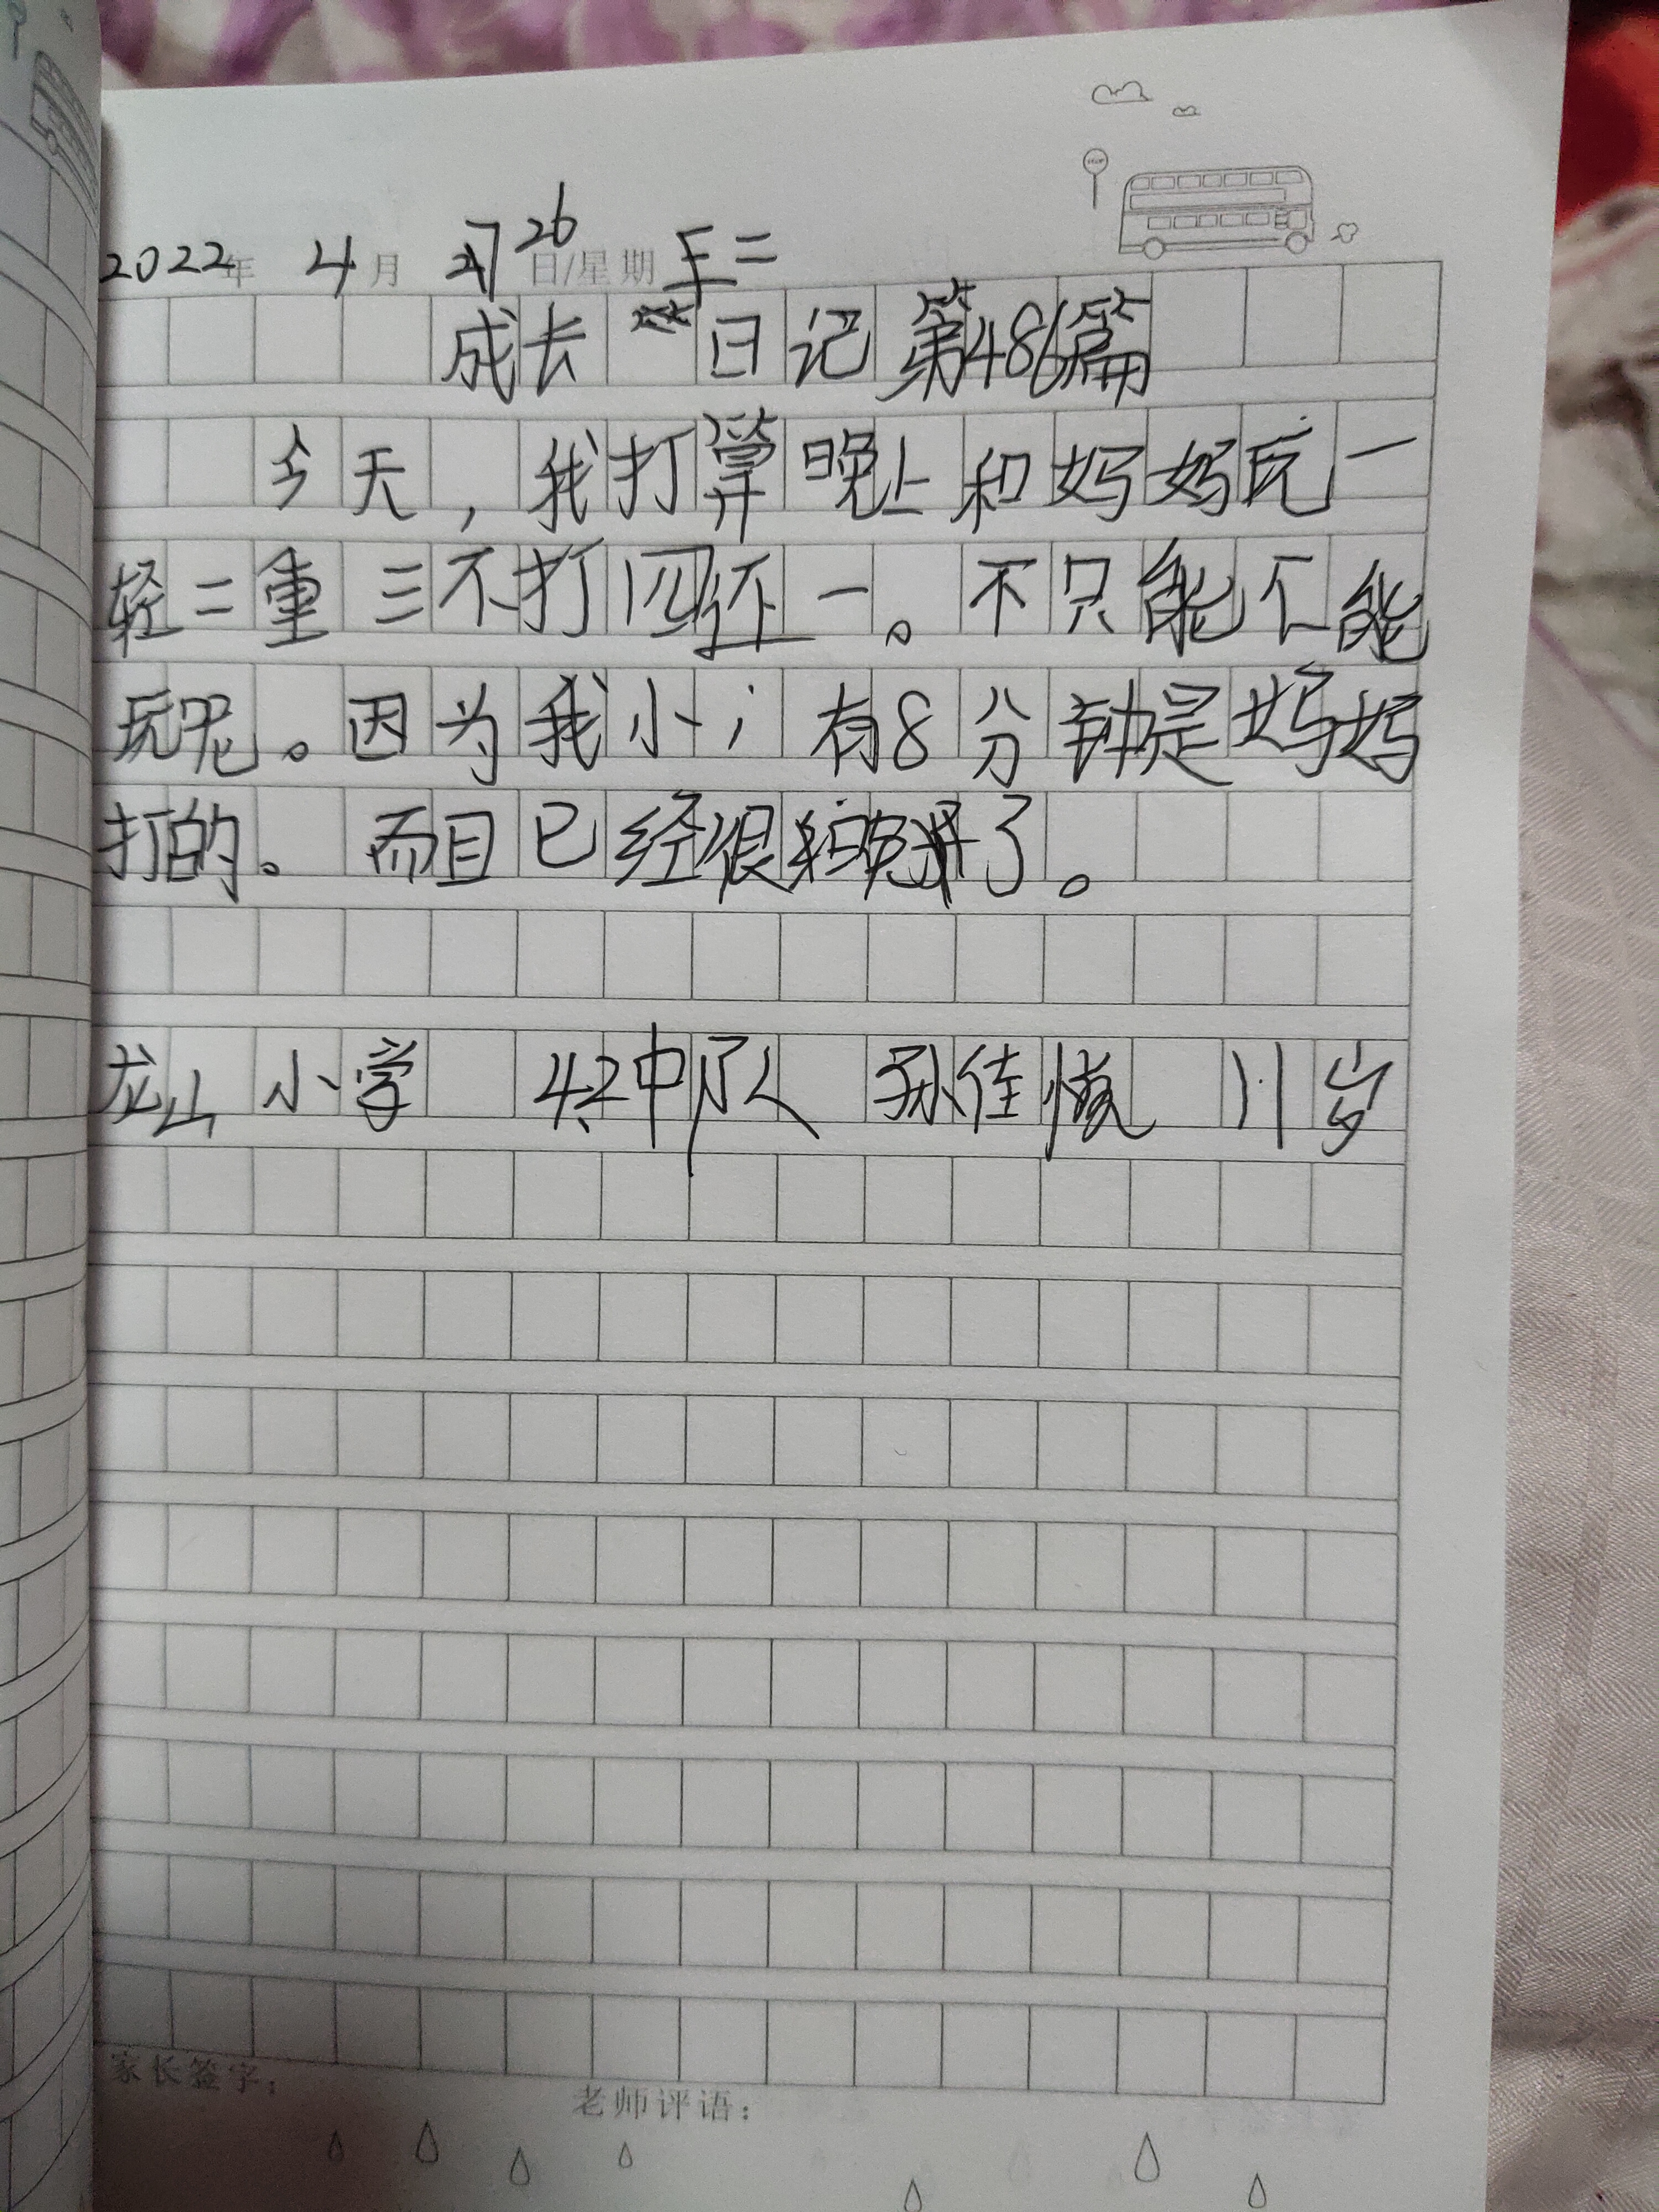 2022年 4月 26日/星期二
成长日记 第486篇
今天，我打算晚上和妈妈玩一
轻二重三不打四还一。不只能不能
玩呢。因为我小，有8分钟是妈妈
打的。而且已经很了。
龙山小学 42中队 孙佳 11岁
家长签字：
老师评语：